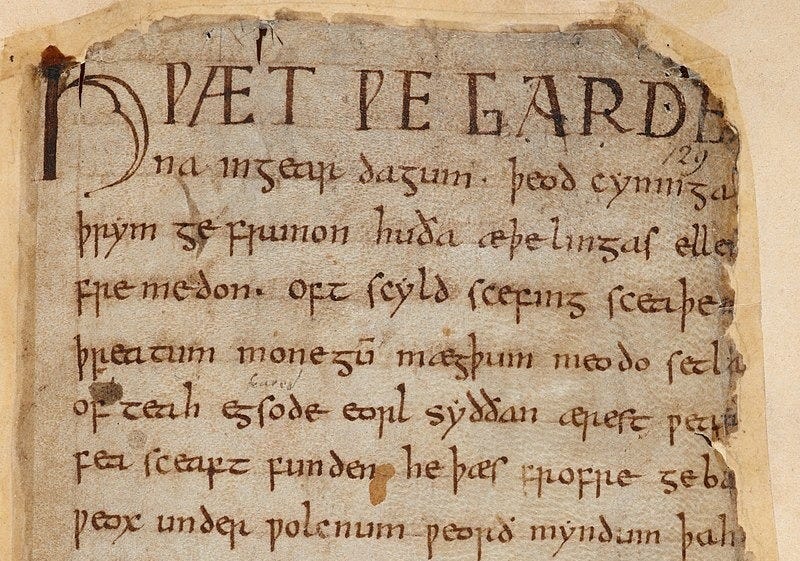 HǷÆT ǷE GARDE
na ingear dagum. þeod cyninga
þrym ge frunon huða æþelingas elle
fremedon. oft scyld scefing sceaþe
þreatum monegū mægþum meodo setla
of teah egsode eorl syððan ærest ƿear
fea sceaft funden he þæs frofre geba
ƿeox under ƿolcnum ƿeorð myndum þah
129